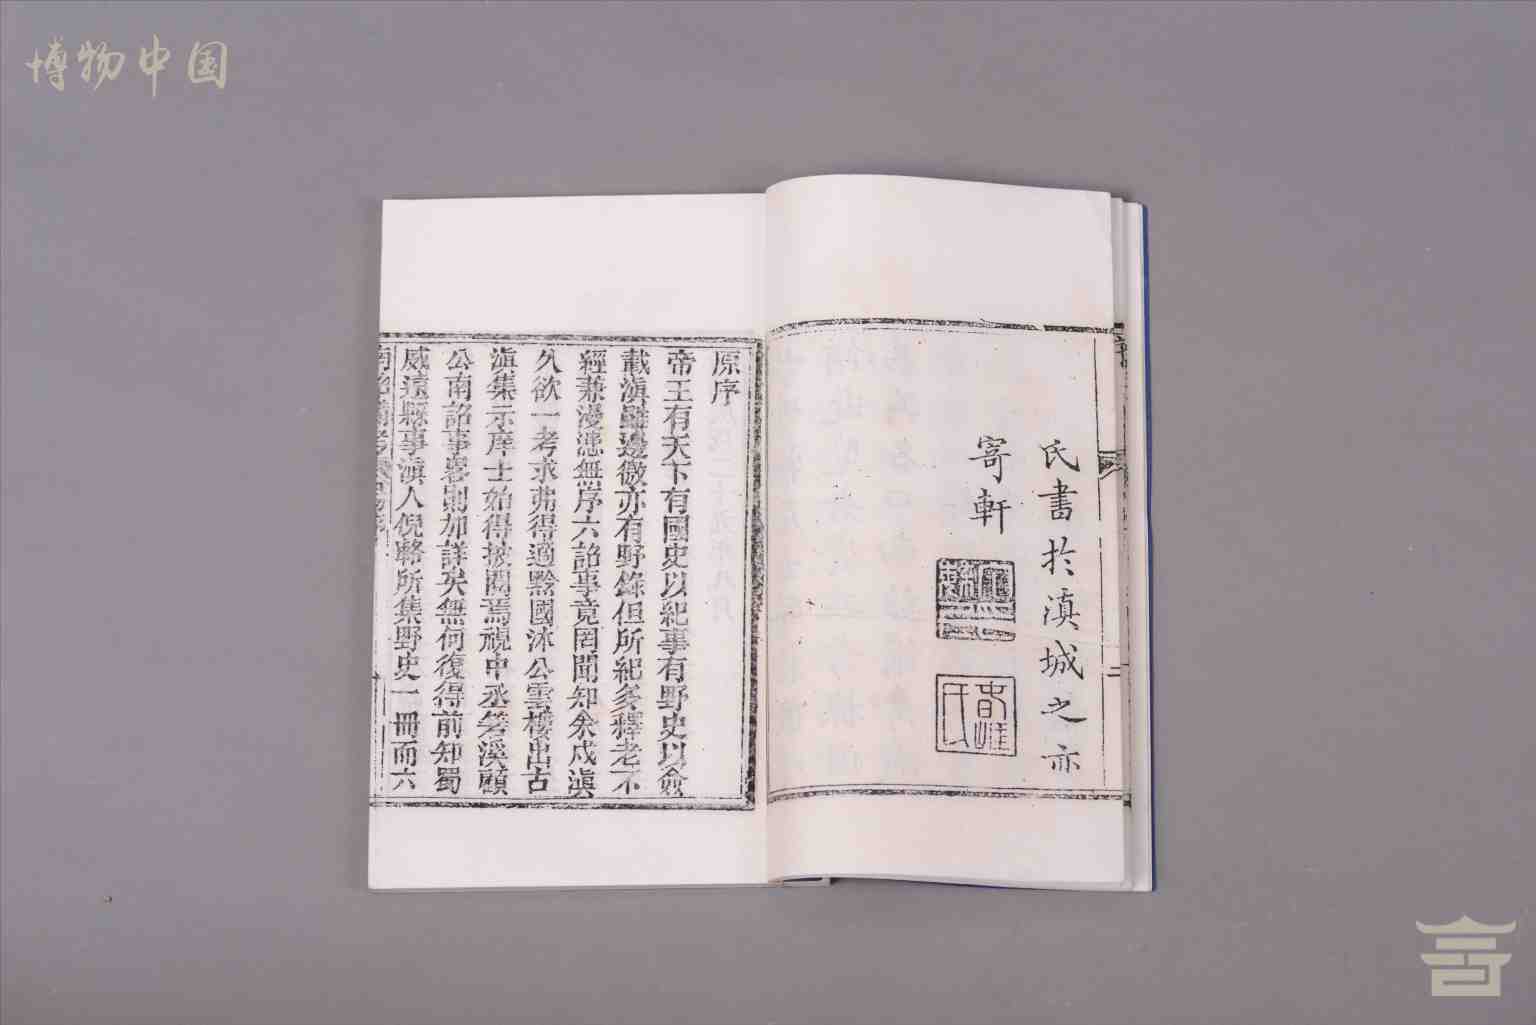 博物中国
氏書於滇城之亦
寄軒
原序
帝王有天下有國史以紀事有野史以僉
載滇雖邊徼亦有野錄但所紀多釋老不
經兼漫漶無序六詔事竟罔聞知余戍滇
久欲一考求弗得適黔國沐公雲樓出古
滇集示庠士始得披閱焉視中丞箬溪顧
公南詔事畧則加詳矣無何復得前知蜀
威遠縣事滇人倪輅所集野史一冊而六